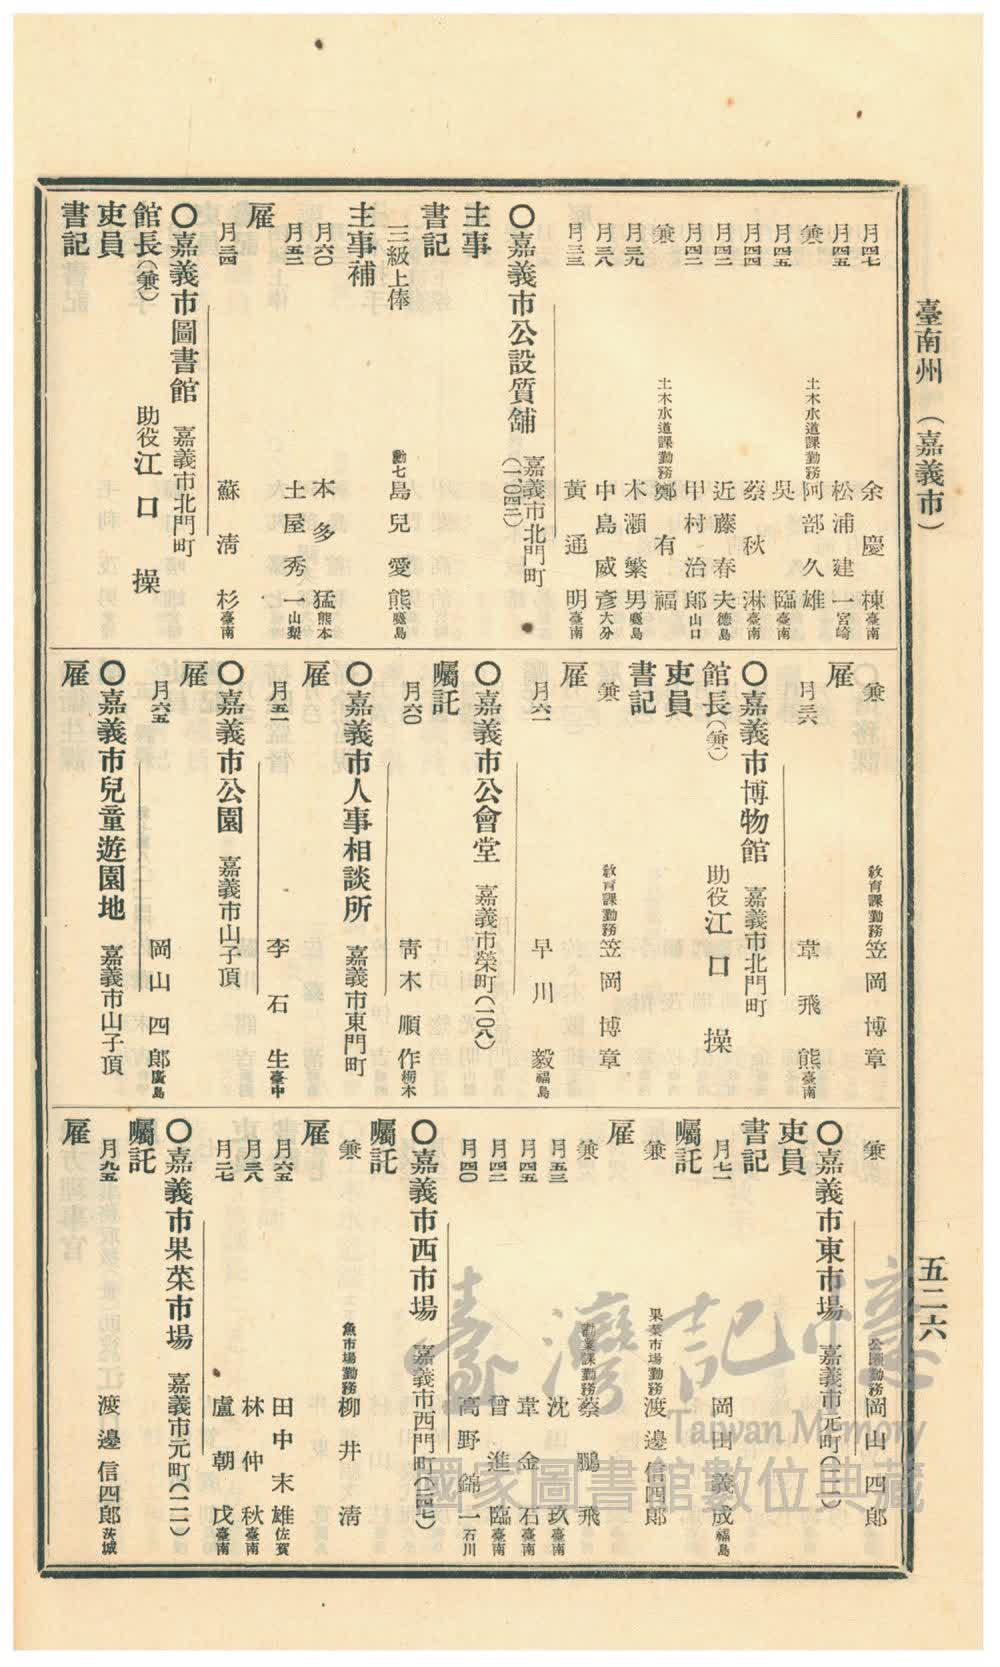 臺南州（嘉義市）
五二六
月四七 余慶棟 臺南
月四五 松浦建一 宮崎
兼 土木水道課勤務 阿部久雄
月四五 吳臨 臺南
月四四 蔡秋淋 臺南
月四二 近藤春夫 德島
月四二 甲村治郎 山口
兼 土木水道課勤務 鄭有福
月三九 木瀨繁男 鹿島
月三八 中島威彥 大分
月三三 黃通明 臺南
〇嘉義市公設質舖 嘉義市北門町
主事
書記
三級上俸 勳七 島兒愛熊 鹿島
主事補
月六〇 本多猛 熊本
月五二 土屋秀一 山梨
雇
月三四 蘇淸杉 臺南
〇嘉義市圖書館 嘉義市北門町
館長（兼） 助役 江口操
吏員
書記
兼 敎育課勤務 笠岡博章
雇
月三六 韋飛熊 臺南
〇嘉義市博物館 嘉義市北門町
館長（兼） 助役 江口操
吏員
書記
兼 敎育課勤務 笠岡博章
雇
月六一 早川毅 福島
〇嘉義市公會堂 嘉義市榮町（一〇八）
囑託
月六〇 靑木順作 栃木
〇嘉義市人事相談所 嘉義市東門町
雇
月五一 李石生 臺中
〇嘉義市公園 嘉義市山子頂
雇
月六五 岡山四郎 廣島
〇嘉義市兒童遊園地 嘉義市山子頂
雇
兼 公園勤務 岡山四郎
〇嘉義市東市場 嘉義市元町
吏員
書記
月七一 岡田義成 福島
囑託
兼 果菜市場勤務 渡邊信四郎
雇
兼 勸業課勤務 蔡鵬飛
月五三 沈玖 臺南
月四五 韋金石 臺南
月四二 曾進臨 臺南
月四〇 高野錦一 石川
〇嘉義市西市場 嘉義市西門町
囑託
兼 魚市場勤務 柳井淸
雇
月六五 田中末雄 佐賀
月三八 林仲秋 臺南
月二七 盧朝戊 臺南
〇嘉義市果菜市場 嘉義市元町
囑託
月九五 渡邊信四郎 茨城
雇
臺灣記憶
Taiwan Memory
國家圖書館數位典藏